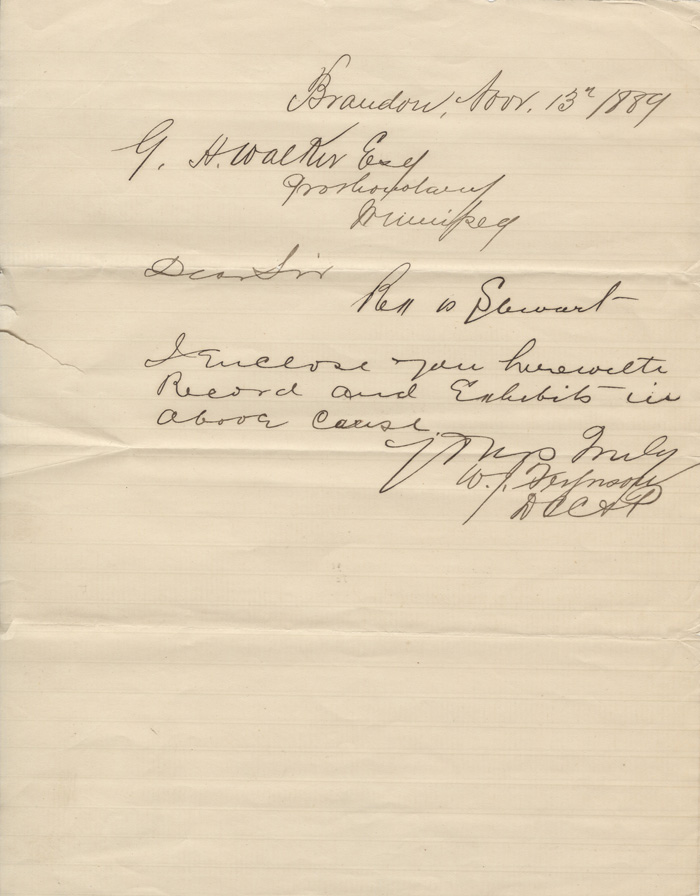 Brandon, Nov. 13th 1889
G. H. Walker Esq
Prothonotary
Winnipeg
Dear Sir
Stewart
I enclose you herewith
Record and Exhibits in
above cause.
Yours Truly
W. J.